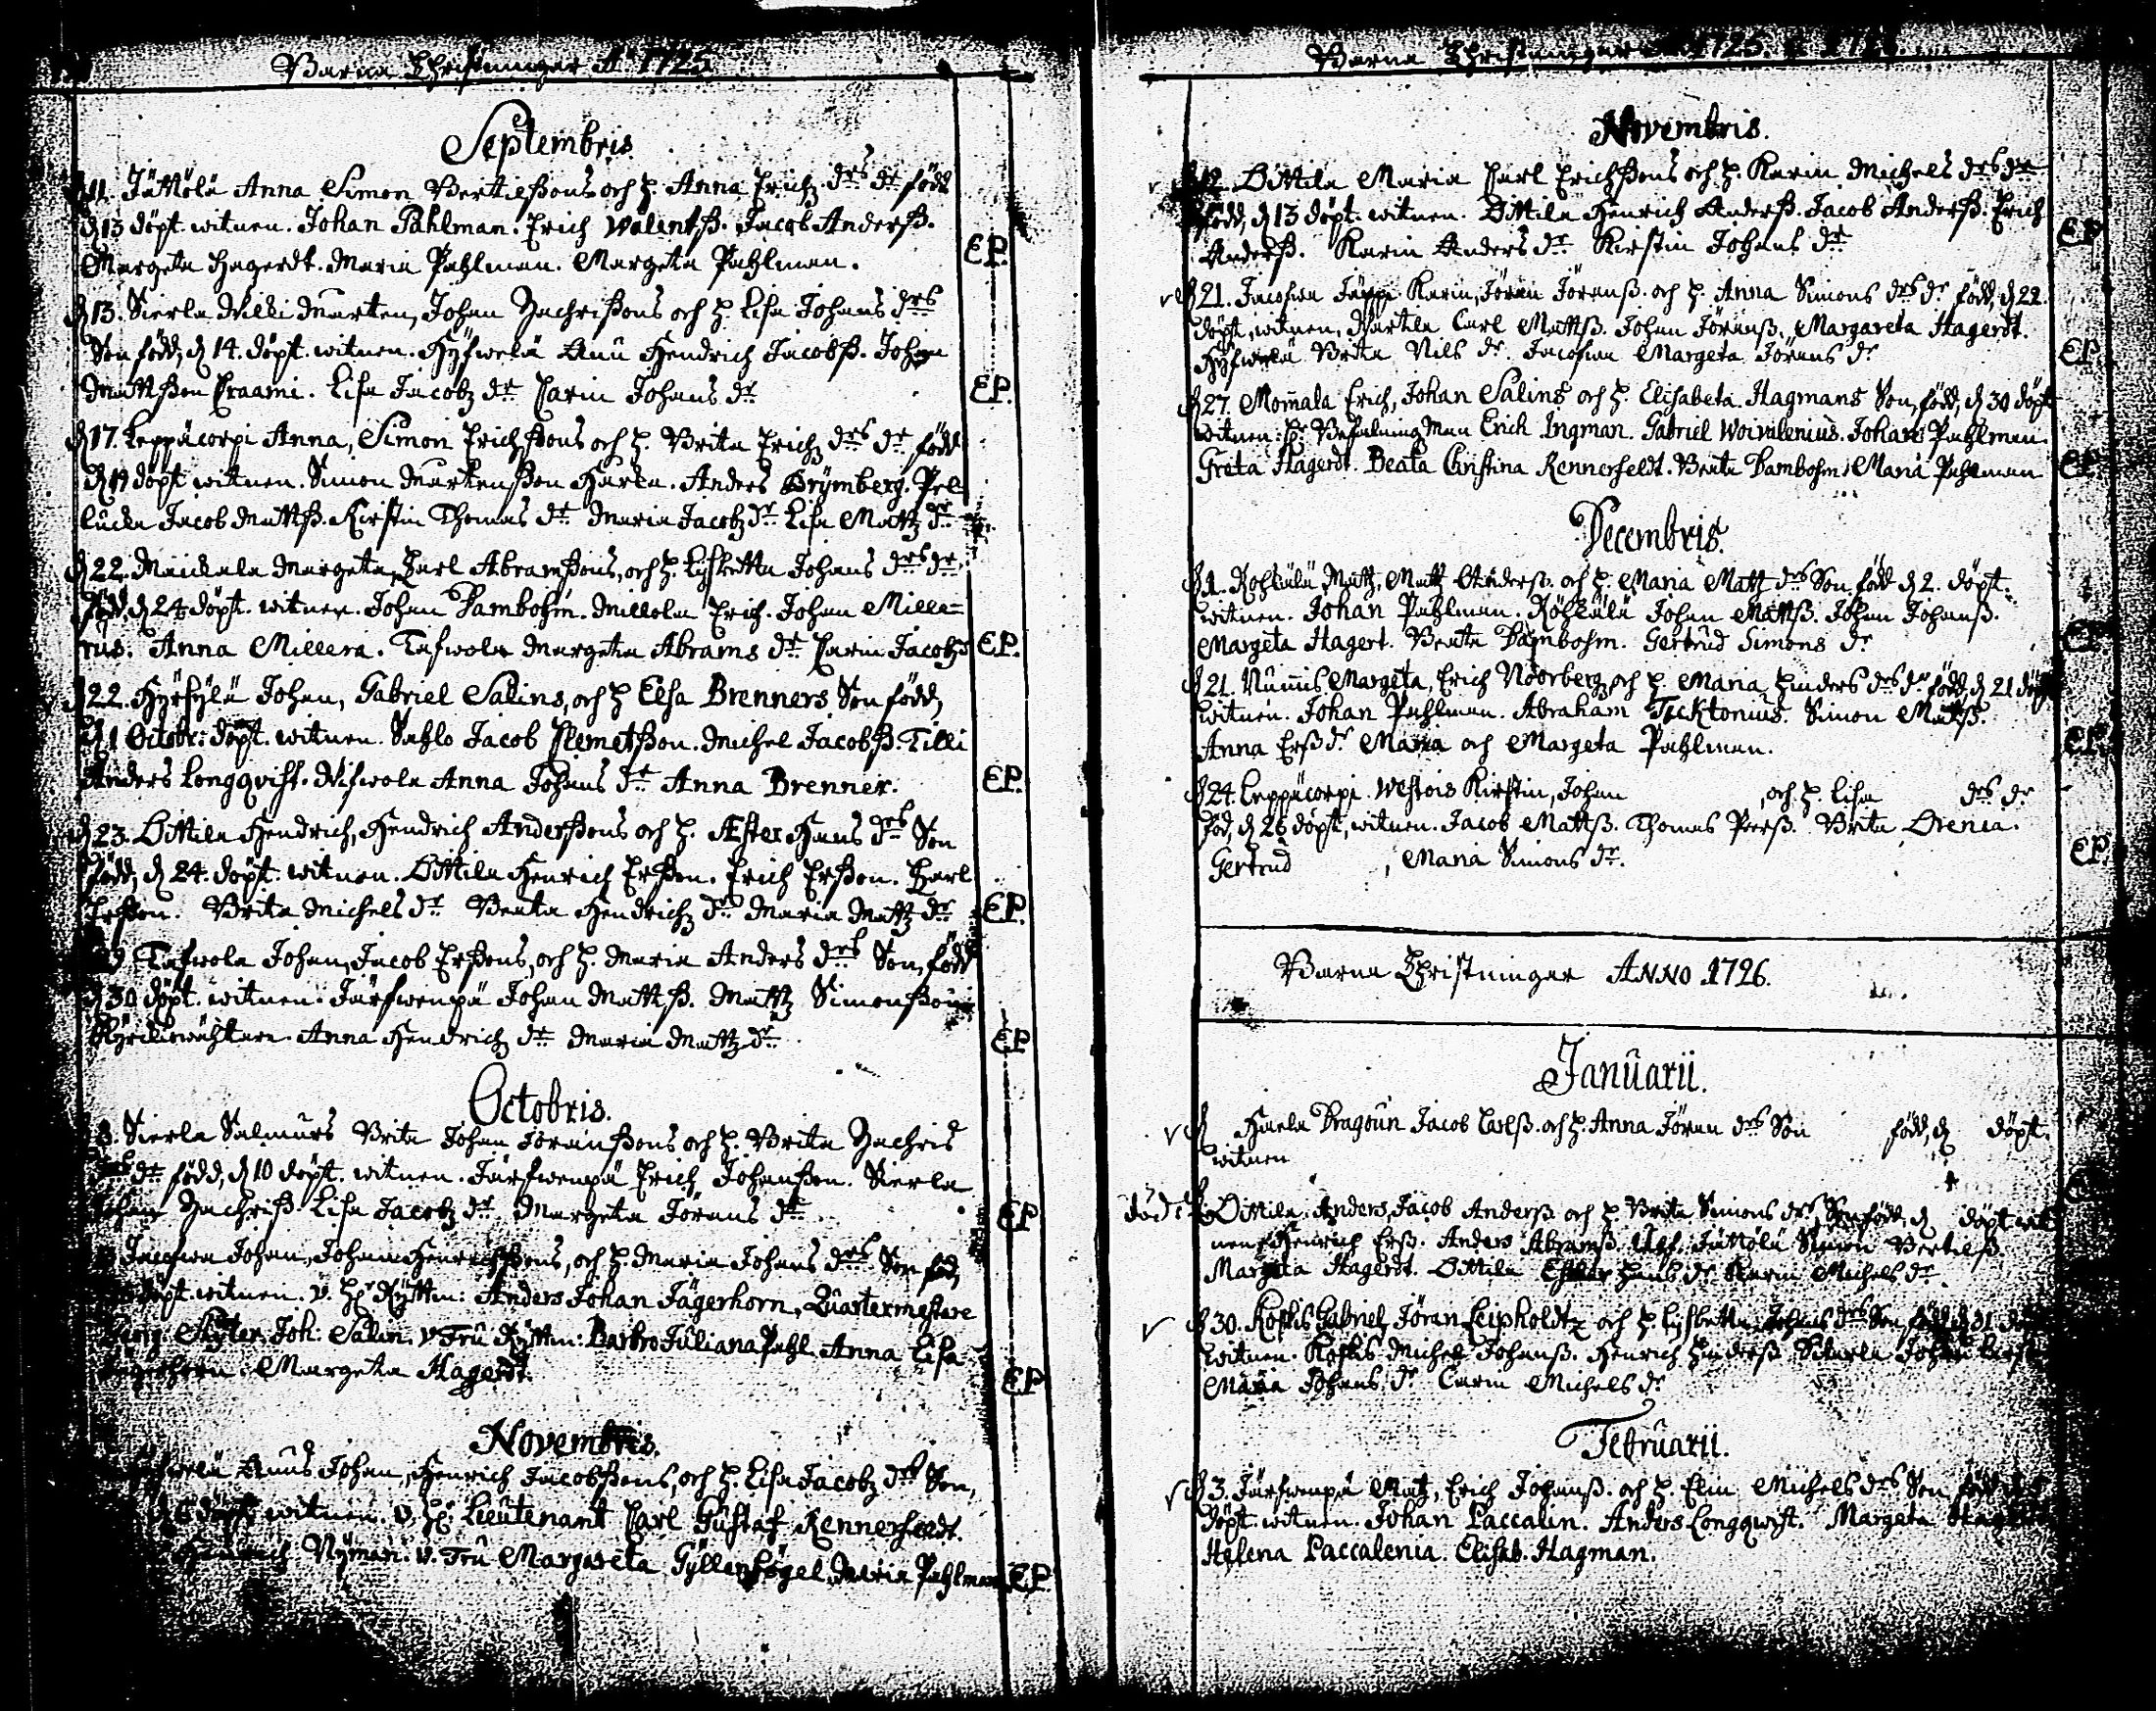 Barna Christningar A° 1725
Septembris
d 11. Jättölä Anna Simon Bertilßons och h. Anna Erichz drs dr född
d 13 döpt. witnen. Johan Pahlman. Erich Walentß. Jacob Anderß.
Margeta Hagerdt. Maria Pahlman. Margeta Pahlman.
EP.
d 13. Sierla Willi Mårten, Johan Zachrißons och h. Lisa Johans drs
Son född, d 14. döpt. witnen. Hyfwelä Anu Hendrich Jacobß. Johan
Mattßon Kraami. Lisa Jacobz dr Carin Johans dr
EP.
d 17. Leppäcorpi Anna, Simon Erichßons och h. Brita Erichz drs dr född
d 19 döpt witnen. Simon Mårtenßon Harla. Anders Brymberg. Pel
lucka Jacob Mattß. Kirstin Thomas dr Maria Jacobz dr Lisa Mattz dr
d 22. Maickala Margeta, Carl Abramßons, och h. Lisbetta Johans drs dr
född, d 24 döpt. witnen. Johan Dambohm. Millola Erich. Johan Mille=
rus. Anna Millera. Tafwola Margeta Abrams dr Carin Jacobz dr
EP.
d 22. Hyrsylä Johan, Gabriel Salins, och h Elsa Brenners Son född,
d 1 Octobr: döpt. witnen. Sahlo Jacob Clemetßon. Michel Jacobß. Tilli
Anders Longqvist. Nifwola Anna Johans dr Anna Brenner.
EP.
d 23. Ollila Hendrich, Hendrich Anderßons och h. Æster Hans drs Son
född, d 24. döpt. witnen. Ollila Henrich Erßon. Erich Erßon. Carl
Erßon. Brita Michels dr Beata Hendrichz dr Maria Mattz dr
EP.
Tafwola Johan, Jacob Erßons, och h. Maria Anders drs Son, född
d 30 döpt. witnen. Järfwenpä Johan Mattß. Mattz Simonßon
Kyrckiowächtare. Anna Hendrichz dr Maria Mattz dr
EP
Octobris.
8. Sierla Salmårs Brita Johan Jöranßons och h. Brita Zachris
drs dr född, d 10 döpt. witnen. Järfwenpä Erich Johanßon. Sierla
Johan Zachriß. Lisa Jacobz dr Margeta Jörans dr
EP
Jacofwa Johan, Johan Henrichßons, och h. Maria Johans drs Son föd,
döpt. witnen. v. Hr Ryttm: Anders Johan Jägerhorn, Quartermestare
Georg. Skyter. Joh: Salin. v Fru Ryttm: Barbro Juliana Pahl. Anna Lisa
Jägerhorn. Margeta Hagerdt.
EP
Novembris.
Anus Johan, Henrich Jacobßons, och h. Lisa Jacobz drs Son,
döpt witnen. v. Hr Lieutenant Carl Gustaf Rennerfeldt.
Nyman. v. Fru Margareta Gyllenbögel. Maria Pahlman
EP.
Barna Christningar 1725.
Novembris.
d 12. Ollila Maria Carl Erichßons och h. Karin Michels drs dr
född, d 13 döpt. witnen. Ollila Henrich Anderß. Jacob Anderß. Erich
Anderß. Karin Anders dr Kirstin Johans dr
EP
d 21. Jacofwa Jäppi Karin, Jöran Jöranß. och h. Anna Simons drs dr född, d 22.
döpt, witnen, Martila Carl Mattß. Johan Jöranß. Margareta Hagerdt.
Hyfwelä Brita Nils dr Jacofwa Margeta Jörans dr
EP
d 27. Mommala Erich, Johan Salins och h. Elisabeta Hagmans Son, född, d 30 döpt
witnen: Hr Befalnings Man Erich Ingman. Gabriel Woivalenius. Johan Pahlman.
Greta Hagerdt. Beata Christina Rennerfeldt. Beata Dambohm. Maria Pahlman
EP
Decembris.
d 1. Kohkälä Mattz, Matt Anderß. och h. Maria Mattz drs Son född d 2. döpt.
witnen. Johan Pahlman. Kohkälä Johan Mattß. Johan Johanß.
Margeta Hagert. Beata Dambohm. Gertrud Simons dr
EP
d 21. Nummis Margeta, Erich Noorberg och h. Maria Hinders drs dr född, d 21 döpt
witnen. Johan Pahlman. Abraham Tecktonius. Simon Mattß.
Anna Erß dr Maria och Margeta Pahlman.
EP.
d 24. Leppäcorpi Westois Kirstin, Johan , och h. Lisa drs dr
föd, d 26 döpt, witnen. Jacob Mattß. Thomas Peerß. Brita Orenia.
Gertrud , Maria Simons dr.
EP.
Barna Christningar ANNO 1726.
Januarii.
d Haela Dragoun Jacob Carlß. och h. Anna Jöran drs Son född, d döpt.
witnen
död: Ollila Anders, Jacob Anderß och h. Brita Simons drs Son född, d döpt wit
nen Henrich Erß. Anders Abramß. Jättölä Simon Bertilß.
Margeta Hagerdt. Ollila Esther Hans dr Karin Michels dr.
d 30. Koskis Gabriel, Jöran Leipholdtz och h Lisbetta Johans drs Son född d 31
witnen. Koskis Michel Johanß. Henrich Hinderß. Johan
Maria Johans dr Carin Michels dr
Februarii.
d 3. Järfwenpä Matz, Erich Johanß. och h. Elin Michels drs Son född
döpt. witnen. Johan Laccalin. Anders Longqwist. Margeta Hagerdt
Helena Laccalenia. Elisab. Hagman.